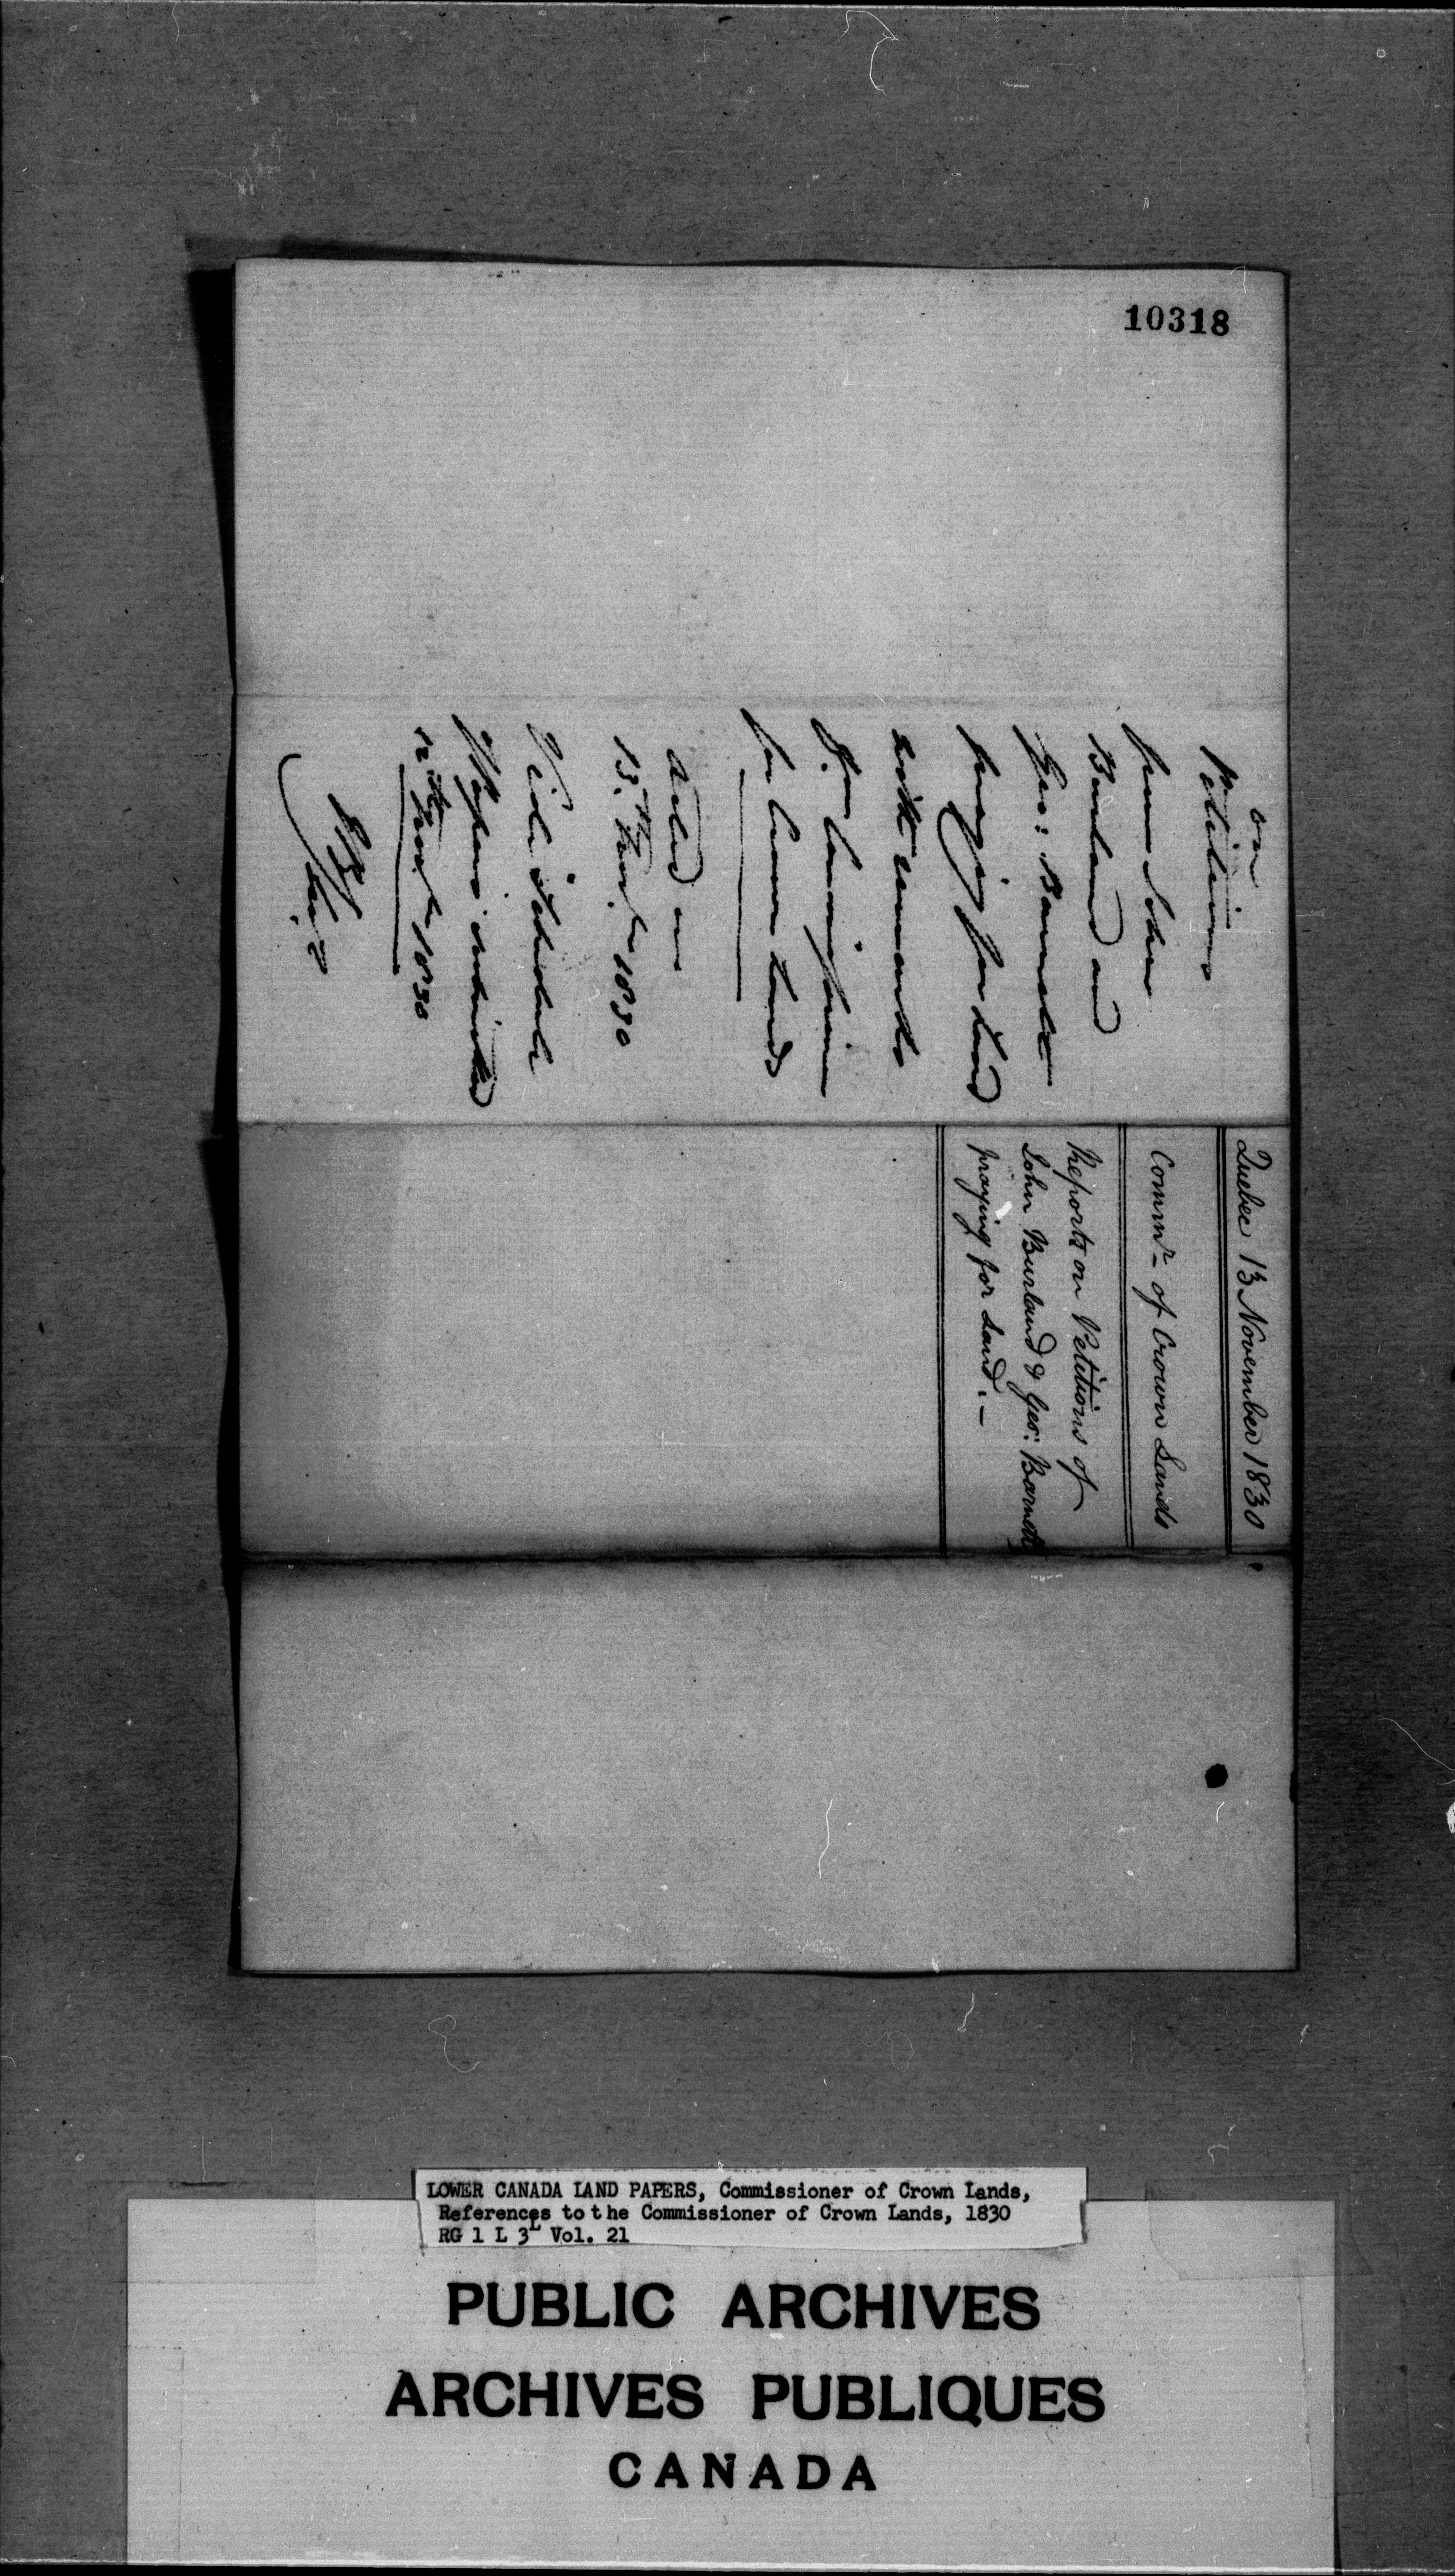 10318
on
Petitions
from John
Burland and
Geo: Barnett
praying for Land
with remarks
from Commissioner
for Crown Lands
Acted on
13th Novr 1830
Vide Schedule
of Papers submitted
12th Novr 1830
Quebec 13 November 1830
Commr of Crown Lands
Reports on Petitions of
John Burland & Geo: Barnett
praying for Land. -
LOWER CANADA LAND PAPERS, Commissioner of Crown Lands,
References to the Commissioner of Crown Lands, 1830
RG 1 L 3L Vol. 21
PUBLIC ARCHIVES
ARCHIVES PUBLIQUES
CANADA